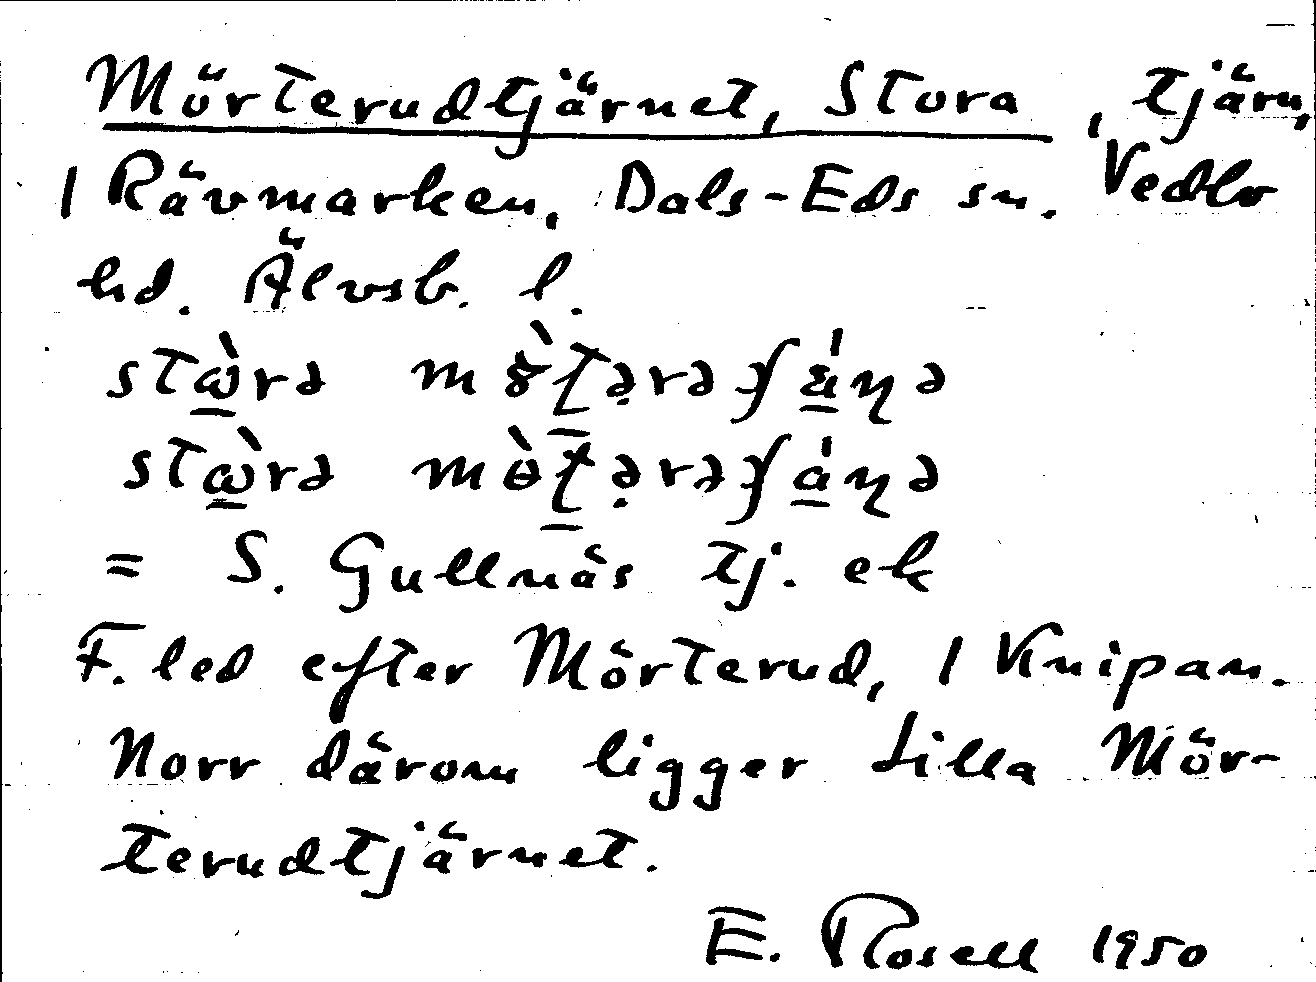 Mörterudtjärnet, Stora, tjärn,
1 Rävmarken, Dals-Eds sn. Vedbo
hd. Älvsb. l.
= S. Gullnäs tj. ek
F. led efter Mörterud, 1 Knipan.
Norr därom ligger Lilla Mör-
terudtjärnet.
E. Rosell 1950